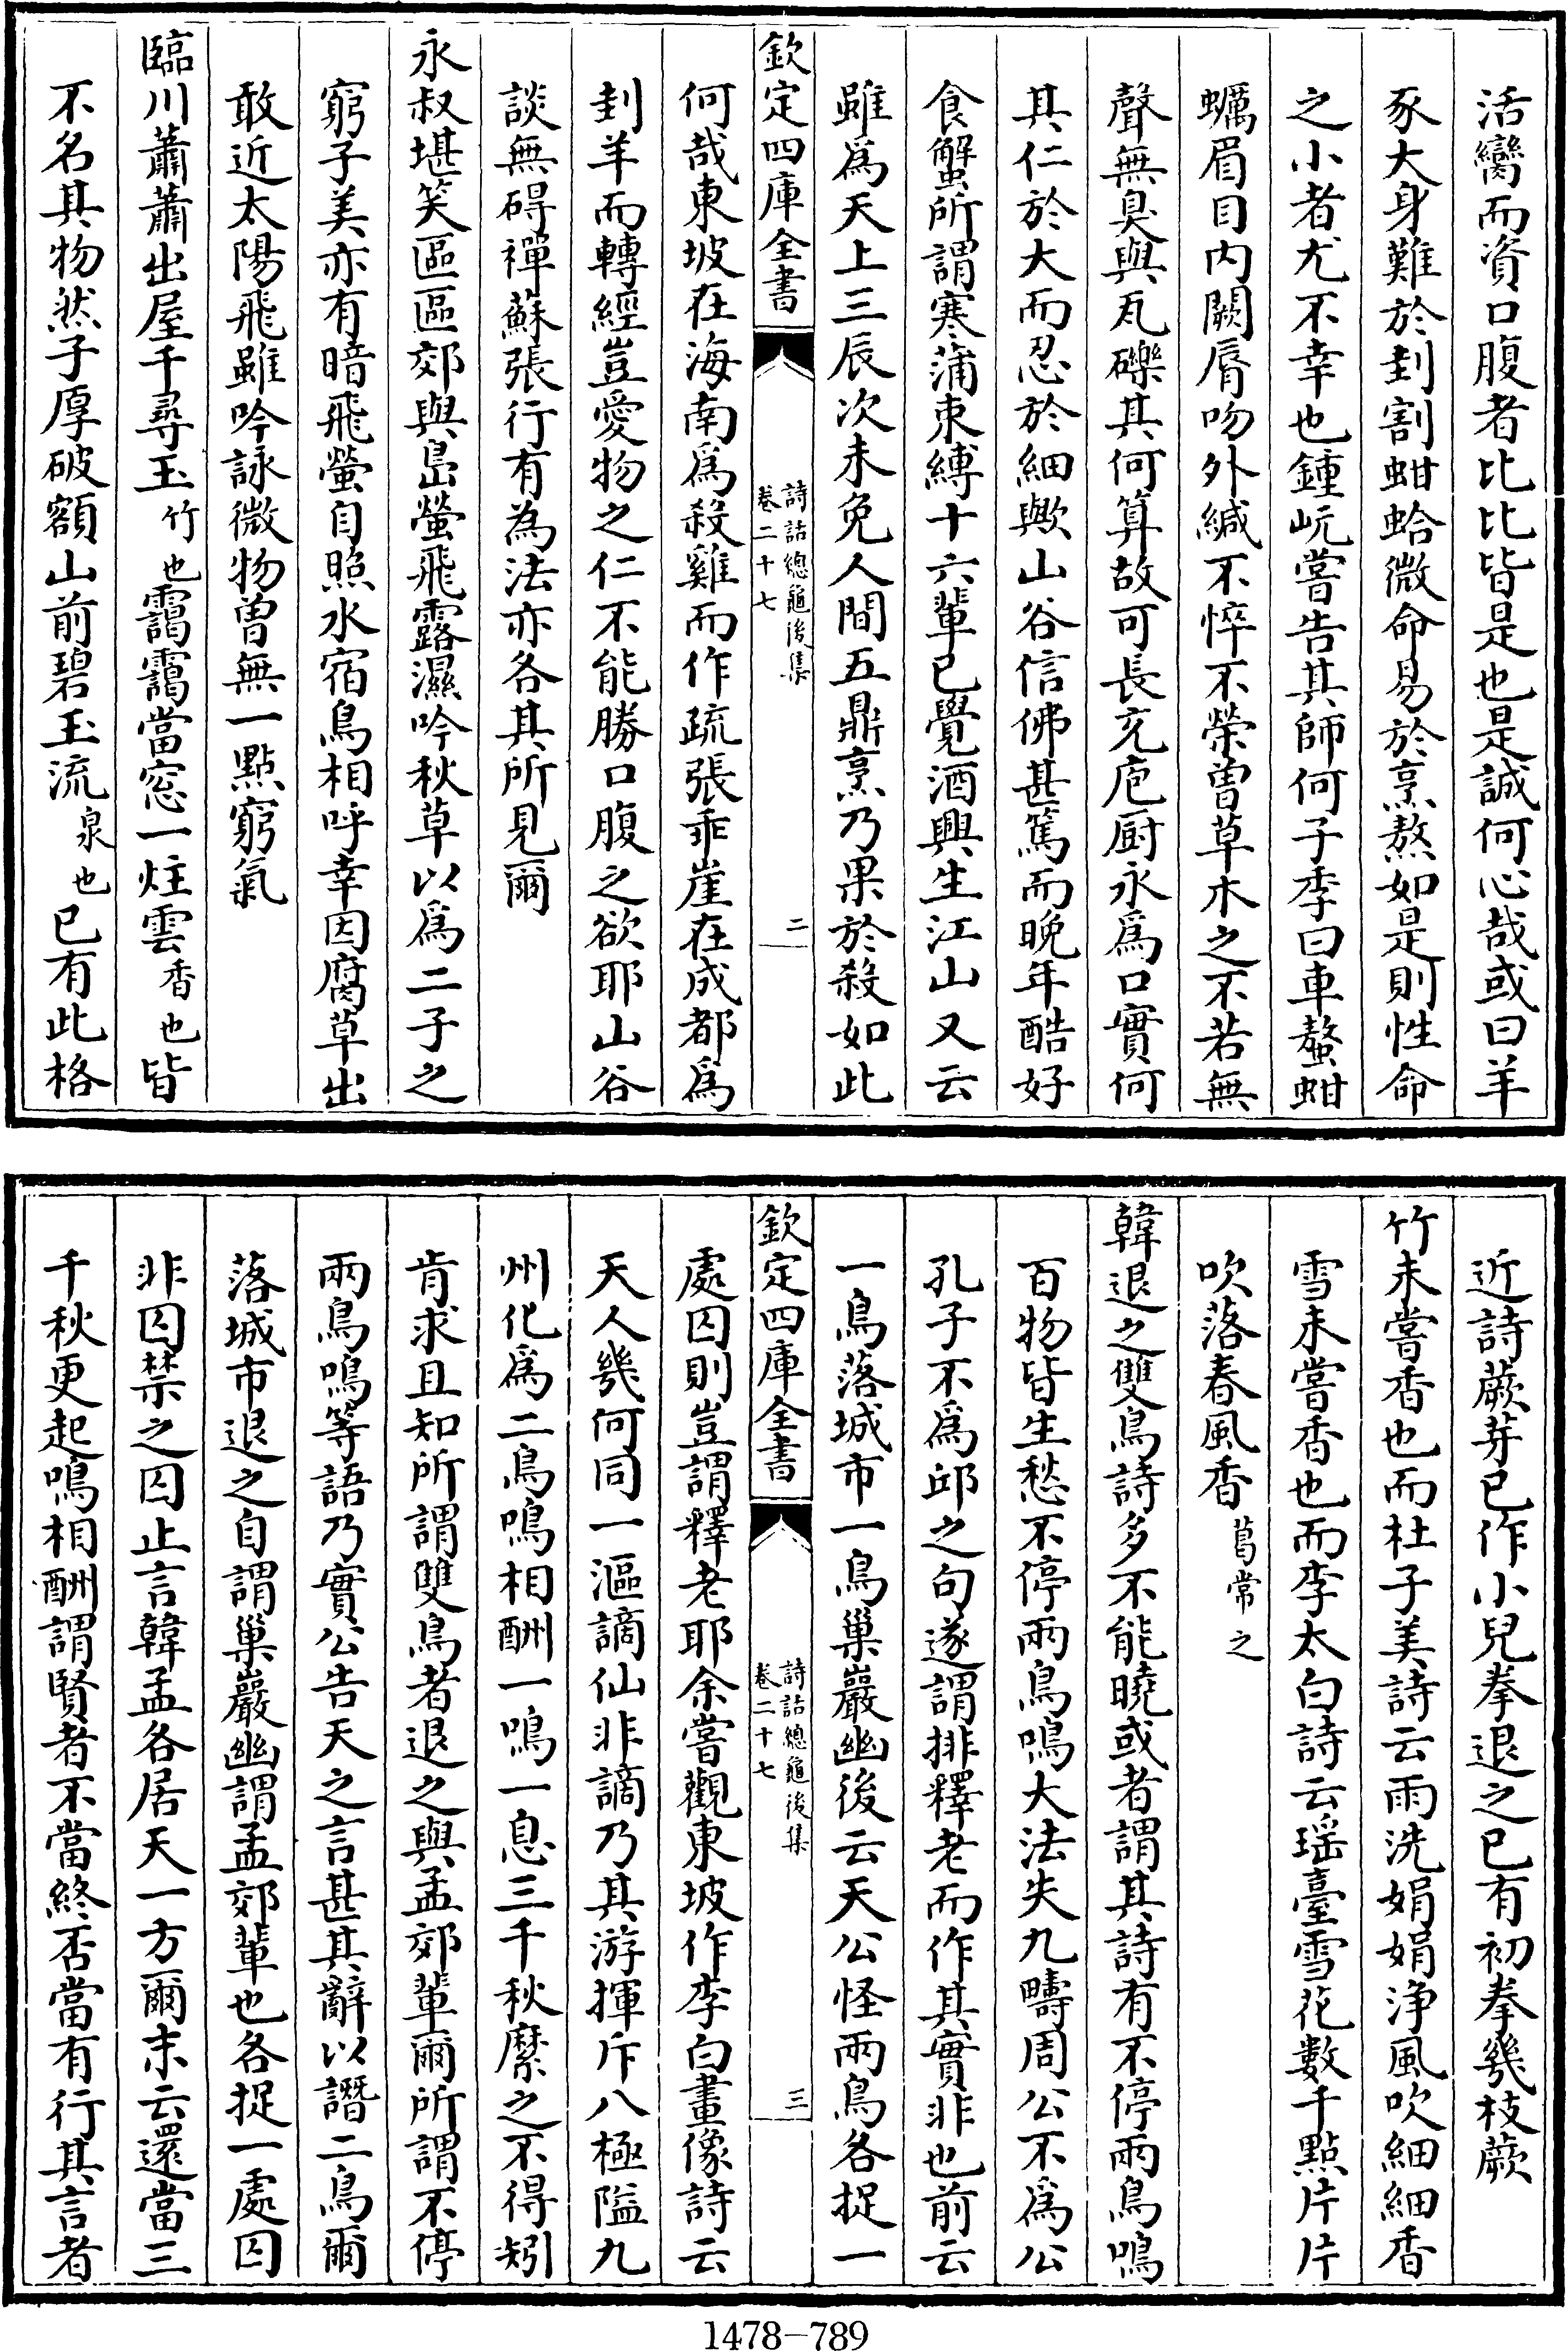 活臠而資口腹者比比皆是也是誠何心哉或曰羊
豕大身難於刲割蚶蛤微命易於烹熬如是則性命
之小者尤不幸也鍾岏嘗告其師何子季曰車螯蚶
蠣眉目内闕脣吻外緘不悴不榮曽草木之不若無
聲無臭與瓦礫其何算故可長充庖厨永爲口實何
其仁於大而忍於細歟山谷信佛甚篤而晚年酷好
食蟹所謂寒蒲束縛十六輩已覺酒興生江山又云
雖爲天上三辰次未免人間五鼎烹乃果於殺如此
欽定四庫全書
詩話總龜後集
卷二十七
二
何哉東坡在海南爲殺雞而作疏張乖崖在成都爲
刲羊而轉經豈愛物之仁不能勝口腹之欲耶山谷
談無碍禪蘇張行有為法亦各其所見爾
永叔堪笑區區郊與島螢飛露濕吟秋草以爲二子之
窮子美亦有暗飛螢自照水宿鳥相呼幸因腐草出
敢近太陽飛雖吟詠微物曽無一點窮氣
臨川蕭蕭出屋千尋玉竹也靄靄當窓一炷雲香也皆
不名其物然子厚破額山前碧玉流泉也已有此格
近詩蕨芽已作小兒拳退之已有初拳幾枝蕨
竹未嘗香也而杜子美詩云雨洗娟娟浄風吹細細香
雪未嘗香也而李太白詩云瑶臺雪花數千點片片
吹落春風香葛常之
韓退之雙鳥詩多不能曉或者謂其詩有不停兩鳥鳴
百物皆生愁不停兩鳥鳴大法失九疇周公不爲公
孔子不爲邱之句遂謂排釋老而作其實非也前云
一鳥落城市一鳥巢巖幽後云天公怪兩鳥各捉一
欽定四庫全書
詩話總龜後集
卷二十七
三
處囚則豈謂釋老耶余嘗觀東坡作李白畫像詩云
天人幾何同一漚謫仙非謫乃其游揮斥八極隘九
州化爲二鳥鳴相酬一鳴一息三千秋縻之不得矧
肯求且知所謂雙鳥者退之與孟郊輩爾所謂不停
兩鳥鳴等語乃實公告天之言甚其辭以譖二鳥爾
落城市退之自謂巢巖幽謂孟郊輩也各捉一處囚
非囚禁之囚止言韓孟各居天一方爾末云還當三
千秋更起鳴相酬謂賢者不當終否當有行其言者
1478-789